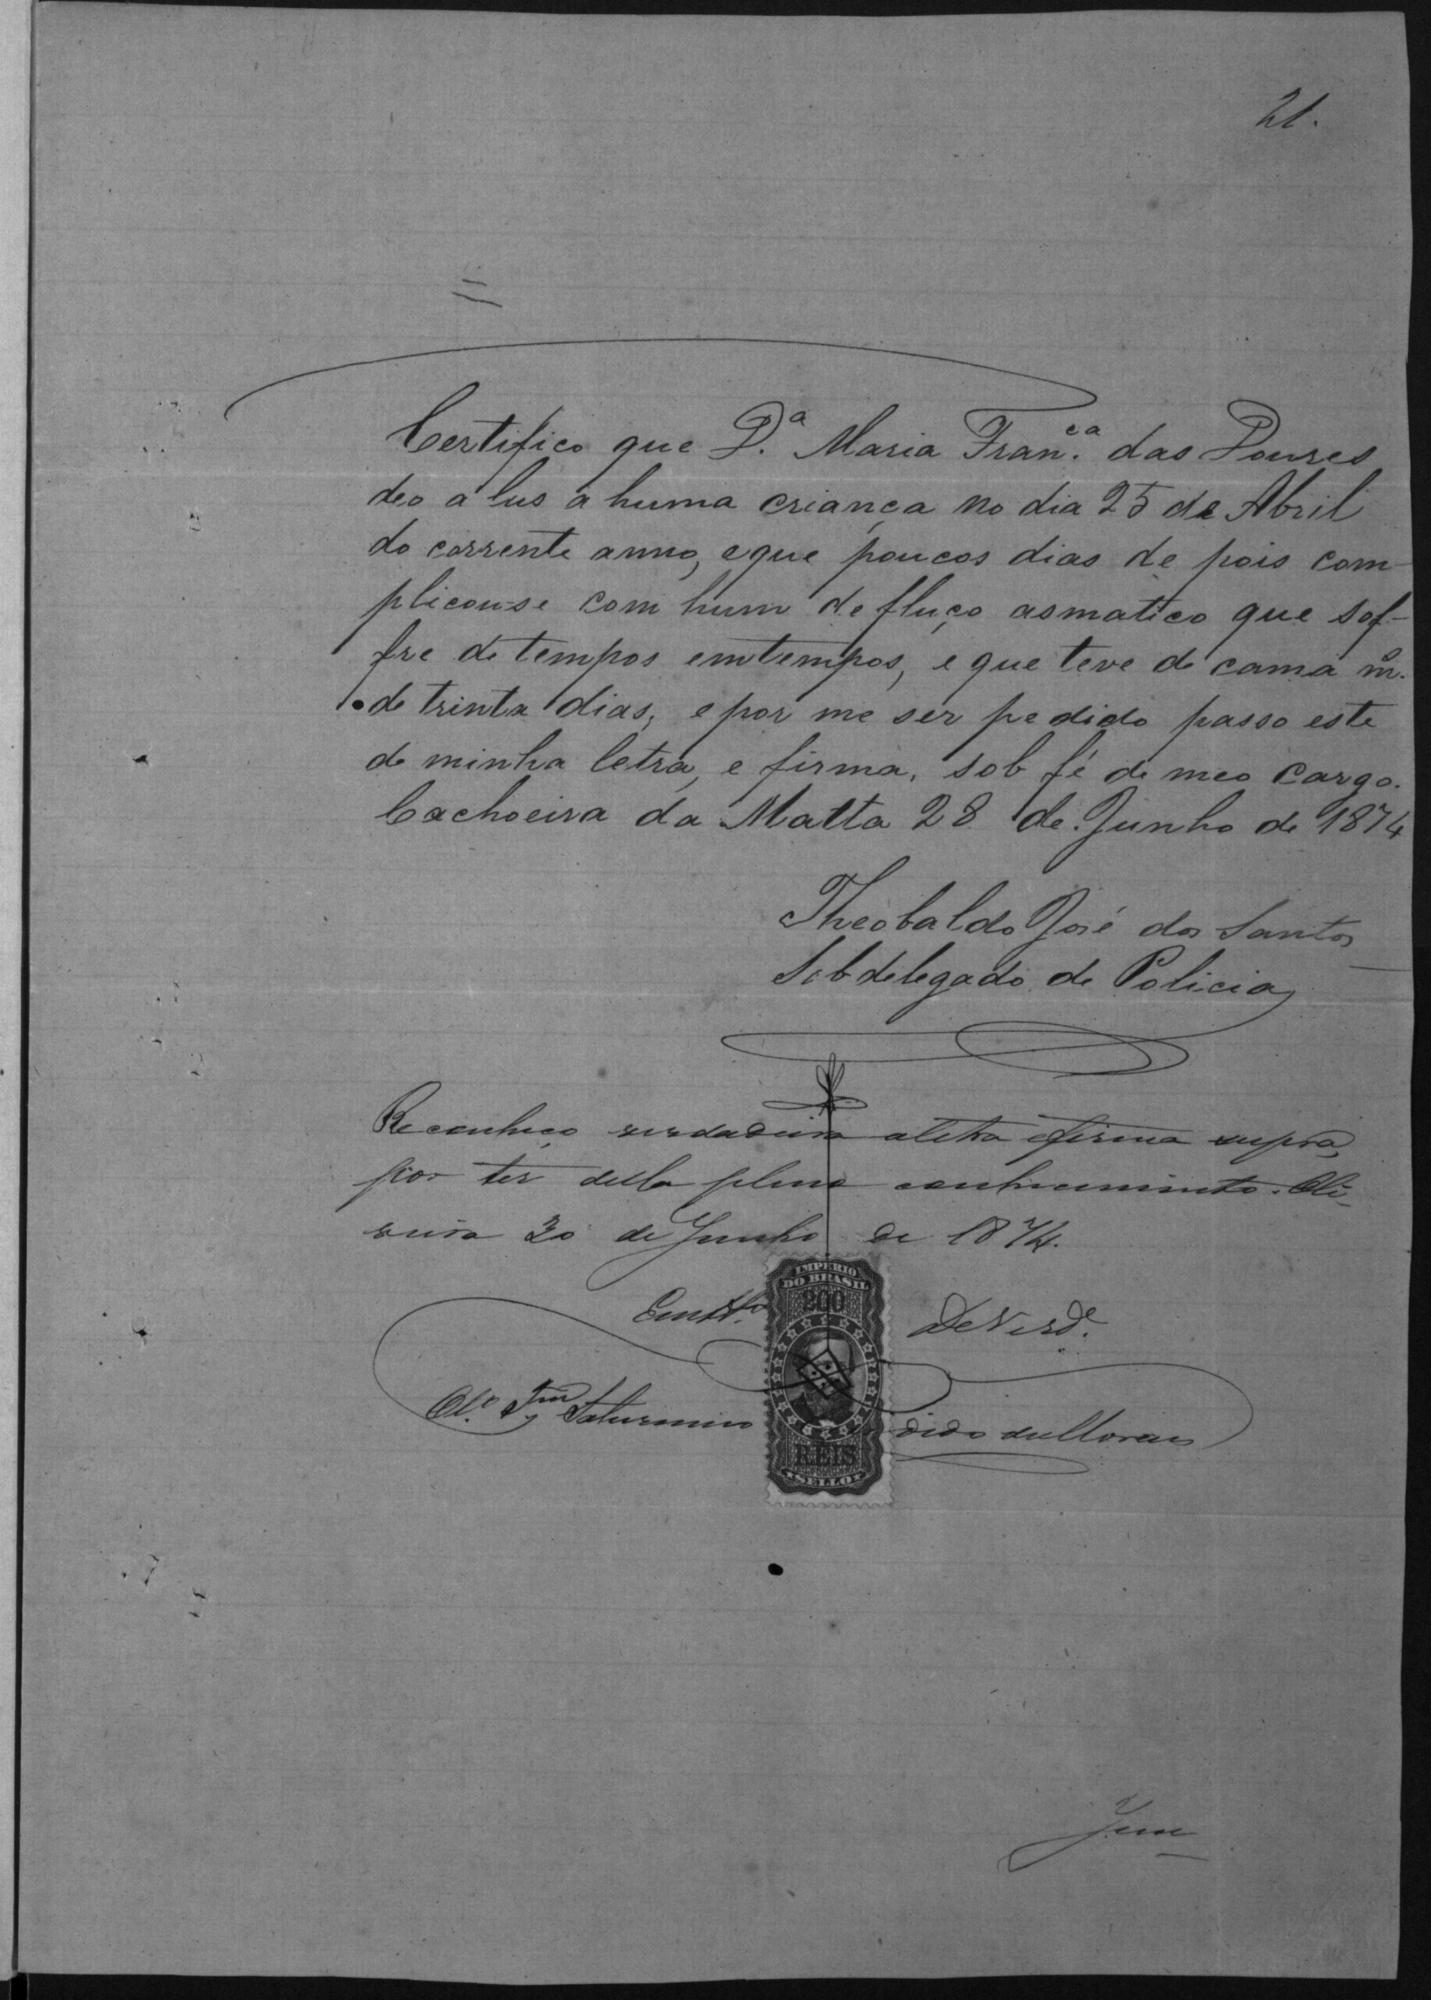 21.
Certifico que D.ª Maria Fran.ca das Doures
deo a lus a huma criança no dia 25 de Abril
do corrente anno, e que poucos dias de pois com-
plicouse com hum defluço asmatico que sof-
fre de tempos emtempos, e que teve de cama m.
de trinta dias, e por me ser pedido passo este
de minha letra, e firma, sob fé de meo cargo.
Cachoeira da Matta 28 de Junho de 1874
Theobaldo José dos Santos
Sobdelegado de Policia
Reconheço verdadeira aletra efirma supra,
por ter della pleno conhecimento. Oli-
veira 30 de Junho de 1874.
Em de Verd.e
IMPERIO
DO BRASIL
200
Saturnino dido de Moraes
REIS
SELLO